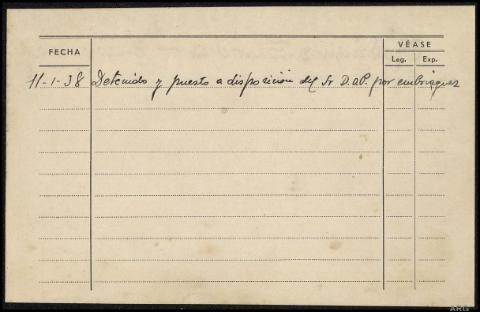 FECHA
VÉASE
Leg. Exp.
11-1-38 Detenido y puesto a disposición del Sr. D. aP. por embriaguez
ARG